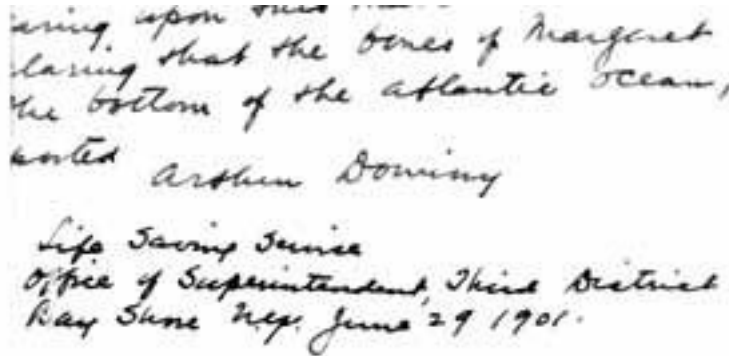 upon this
that the bones of Margaret
the bottom of the atlantic ocean,
Arthur Dominy
Life Saving Service
Office of Superintendent, Third District
Bay Shore N.Y. June 29 1901.